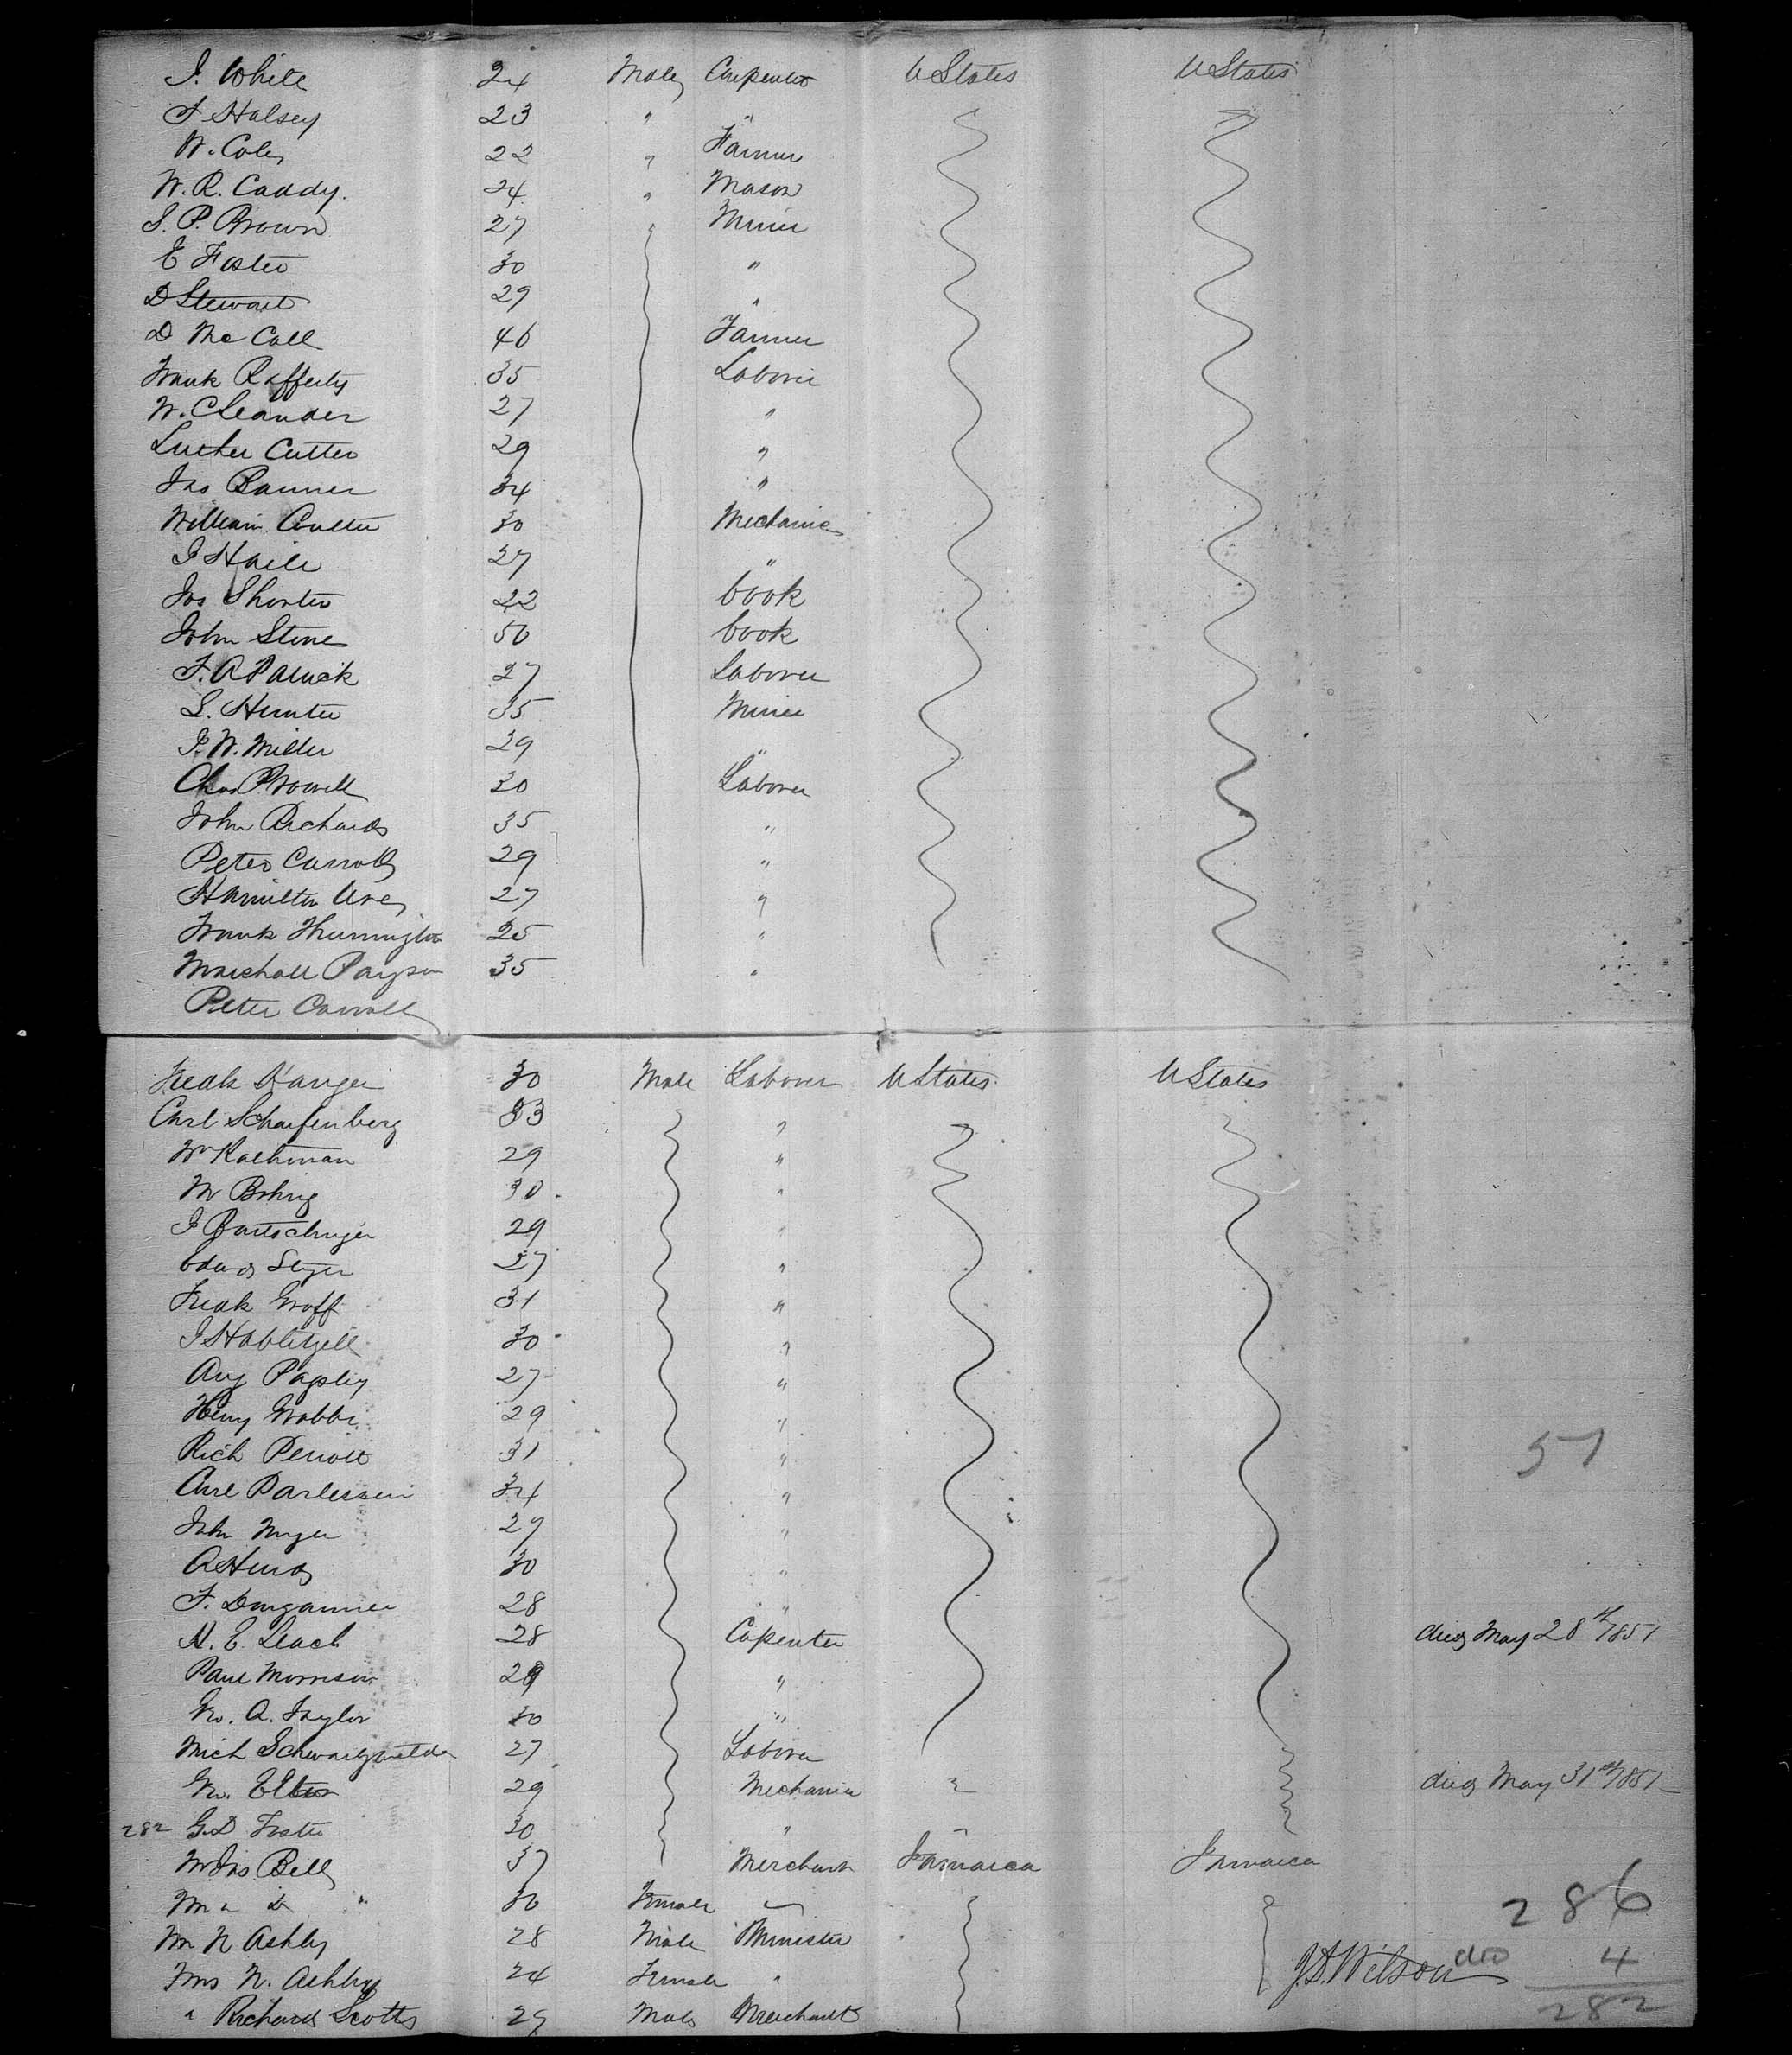 J. White 24 Male Carpenter U States U States
F Halsey 23 " "
W. Cole 22 " Farmer
W. R. Caddy. 24 " Mason
S. P. Brown 27 " Miner
E Foster 30 "
D Stewart 29 "
D McCall 40 Farmer
Frank Rafferty 35 Laborer
W. C Leander 27 "
Luther Cutter 29 "
Jas Banner 34 "
William Coulter 30 Mechanic
J Haile 27 "
Jos Shorter 22 Cook
John Stone 50 Cook
F. A Patrick 27 Laborer
S. Hunter 35 Miner
J. W. Miller 29 "
Chas Prowell 30 Laborer
John Richards 35 "
Peter Carroll 29 "
Hamilton 27 "
Frank 25 "
Marshall Payson 35 "
Peter Carroll
Fredk 30 Male Laborer U States U States
Carl Scharfenberg 33 "
Wm Kaltman 29 "
M Bohrig 30 "
J 29 "
Edward 27 "
Fredk Groff 31 "
J Hablitzell 30 "
Aug 27 "
Henry Grobbe 29 "
Rich Perrott 31 "
Carl 34 "
John Meyer 27 "
A Hinds 30 "
F. 28 "
H. E. Leach 28 Capenter died May 28th/851
Paul Morrison 29 "
Geo. A. Taylor 30 "
Mich Schwartzwelder 27 Laborer
Geo. Elton 29 Mechanic " died May 31st/851
282 G. D Foster 30 " "
Mr Jas Bell 37 Merchant Jamaica Jamaica
Mrs D " 30 Female 286
Mr N Ashby 28 Male Minister
Mrs N. Ashby 24 Female " J. D. Wilson died 4
" Richard Scotts 29 Male Merchant 282
51